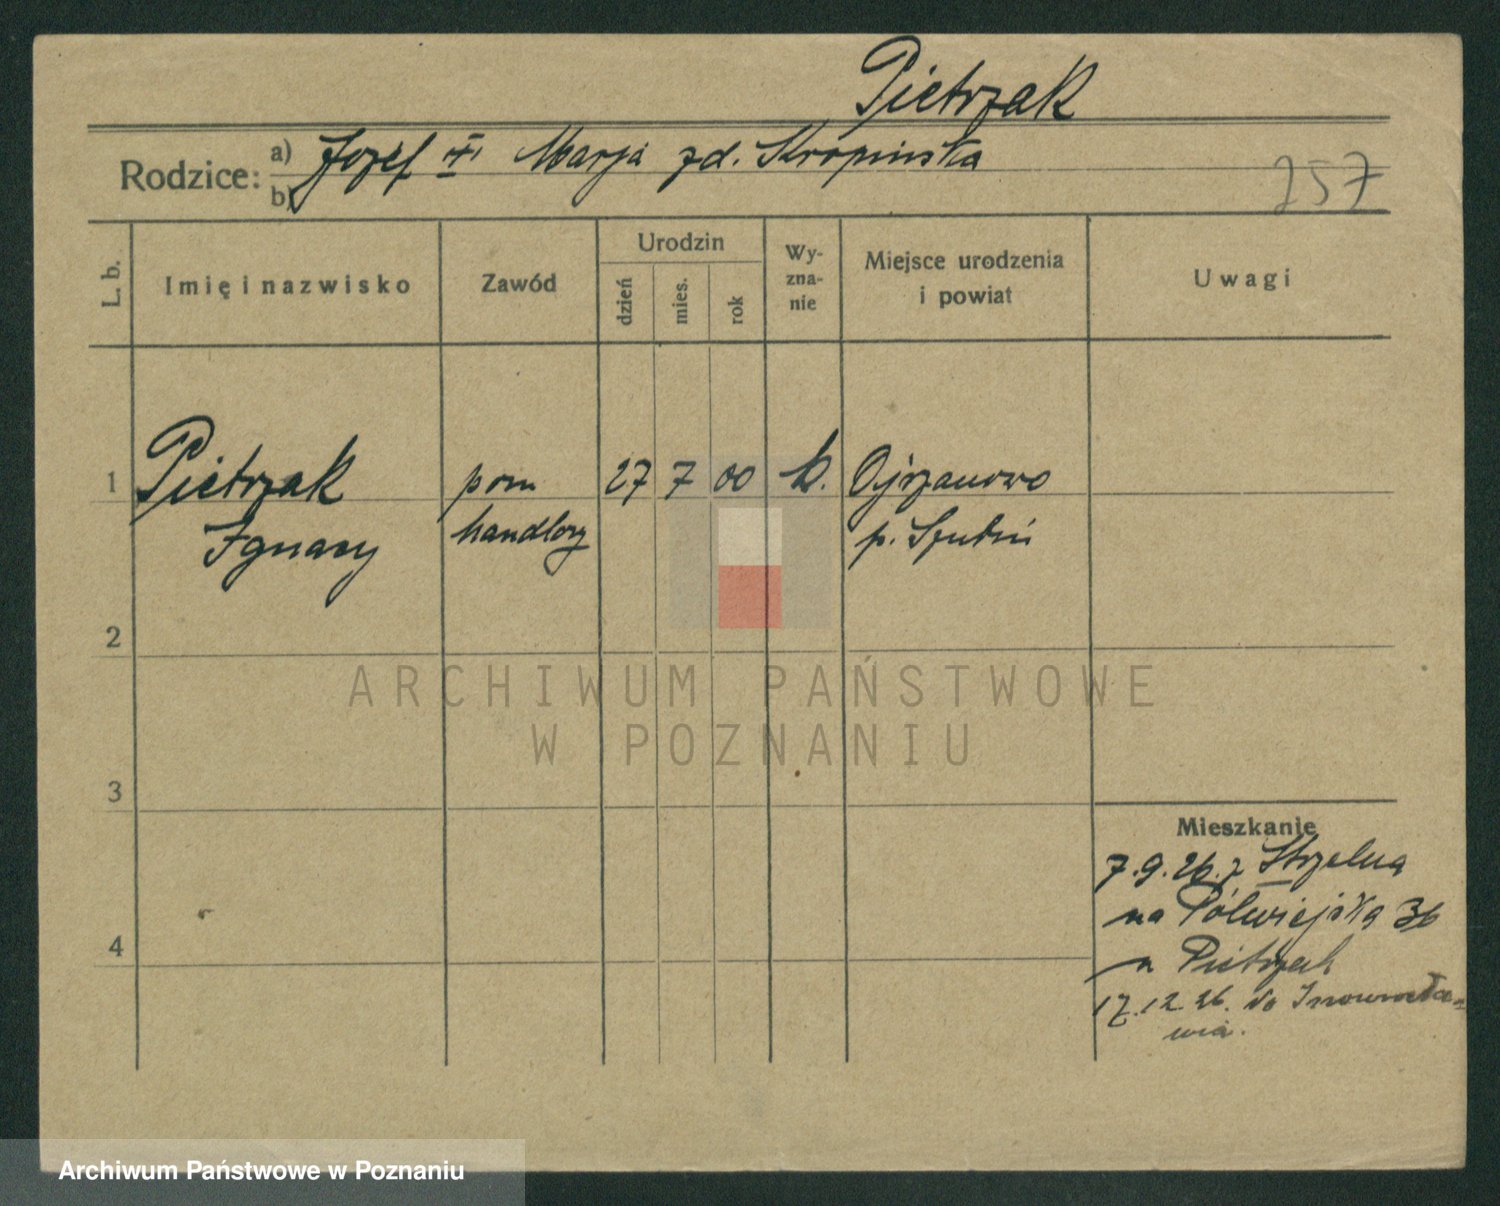 Pietrzak
Rodzice: a) Józef i Marja zd. Kropińska
b)
257
L. b.
Imię i nazwisko
Zawód
Urodzin
dzień
mies.
rok
Wy-
zna-
nie
Miejsce urodzenia
i powiat
Uwagi
1 Pietrzak pom 27 7 00 k. Ojrzanowo
Ignacy handlowy p. Szubin
2
ARCHIWUM PAŃSTWOWE
W POZNANIU
3
Mieszkanie
7.9.26. z Strzelna
na Półwiejska 36
u Pietrzak
4
17.12.26. do Inowrocła-
wia.
Archiwum Państwowe w Poznaniu